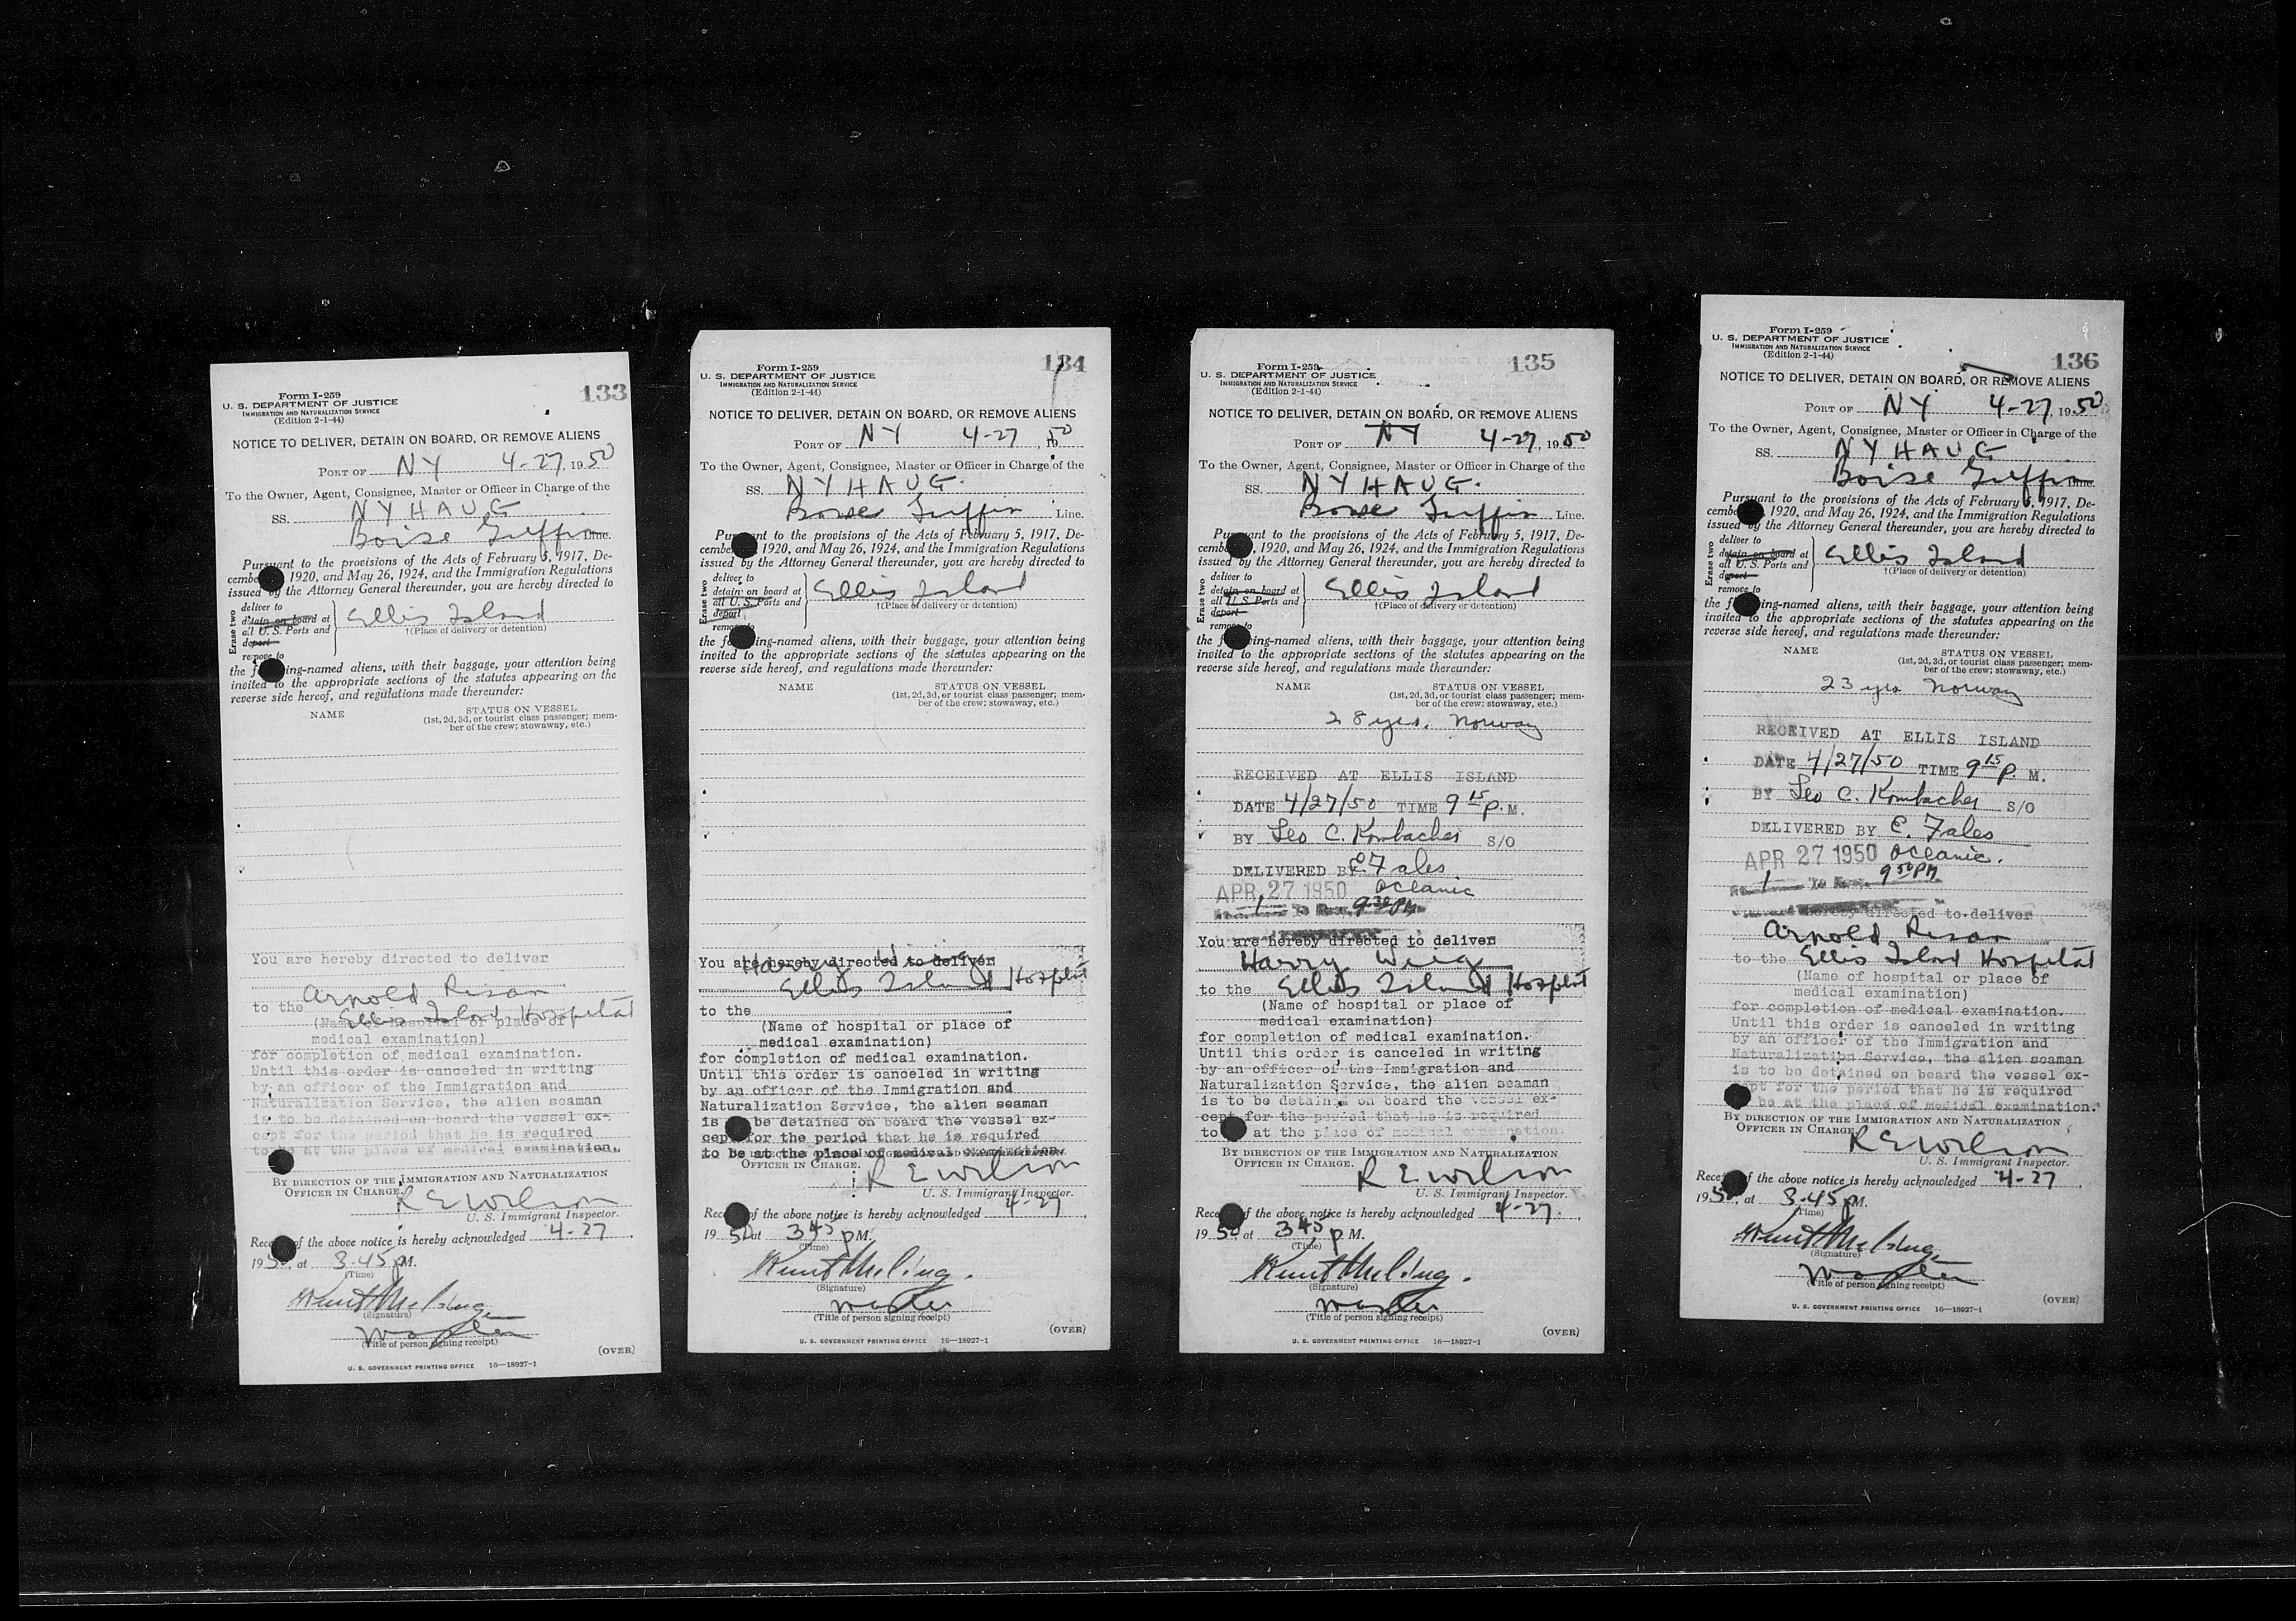 133
Form I-259
U. S. DEPARTMENT OF JUSTICE
IMMIGRATION AND NATURALIZATION SERVICE
(Edition 2-1-44)
NOTICE TO DELIVER, DETAIN ON BOARD, OR REMOVE ALIENS
PORT OF NY 4-27, 1950
To the Owner, Agent, Consignee, Master or Officer in Charge of the
SS. NYHAUG
Boise Griffin Line.
Pursuant to the provisions of the Acts of February 5, 1917, De-
cember 1920, and May 26, 1924, and the Immigration Regulations
issued by the Attorney General thereunder, you are hereby directed to
Erase two
deliver to
detain on board at
all U. S. Ports and
deport
remove to
Ellis Island
†(Place of delivery or detention)
the f ing-named aliens, with their baggage, your attention being
invited to the appropriate sections of the statutes appearing on the
reverse side hereof, and regulations made thereunder:
NAME STATUS ON VESSEL
(1st, 2d, 3d, or tourist class passenger; mem-
ber of the crew; stowaway, etc.)
You are hereby directed to deliver
Arnold Risan
to the Ellis Island Hospital
(Name of hospital or place of
medical examination)
for completion of medical examination.
Until this order is canceled in writing
by an officer of the Immigration and
Naturalization Service, the alien seaman
is to be detained on board the vessel ex-
cept for the period that he is required
to at the place of medical examination.
BY DIRECTION OF THE IMMIGRATION AND NATURALIZATION
OFFICER IN CHARGE.
R E Wilson
U. S. Immigrant Inspector.
Rece of the above notice is hereby acknowledged 4-27,
1950, at 3-45 PM.
(Time)
(Signature)
Master
(Title of person signing receipt)
(OVER)
U. S. GOVERNMENT PRINTING OFFICE 16—18927-1
134
Form I-259
U. S. DEPARTMENT OF JUSTICE
IMMIGRATION AND NATURALIZATION SERVICE
(Edition 2-1-44)
NOTICE TO DELIVER, DETAIN ON BOARD, OR REMOVE ALIENS
PORT OF NY 4-27, 1950
To the Owner, Agent, Consignee, Master or Officer in Charge of the
SS. NYHAUG.
Boise Griffin Line.
Pursuant to the provisions of the Acts of February 5, 1917, De-
cembe 1920, and May 26, 1924, and the Immigration Regulations
issued by the Attorney General thereunder, you are hereby directed to
Erase two
deliver to
detain on board at
all U. S. Ports and
deport
remove to
Ellis Island
†(Place of delivery or detention)
the f ing-named aliens, with their baggage, your attention being
invited to the appropriate sections of the statutes appearing on the
reverse side hereof, and regulations made thereunder:
NAME STATUS ON VESSEL
(1st, 2d, 3d, or tourist class passenger; mem-
ber of the crew; stowaway, etc.)
You are hereby directed to deliver
Harry Wiig
Ellis Island Hospital
to the
(Name of hospital or place of
medical examination)
for completion of medical examination.
Until this order is canceled in writing
by an officer of the Immigration and
Naturalization Service, the alien seaman
is be detained on board the vessel ex-
cept for the period that he is required
to be at the place of medical examination.
OFFICER IN CHARGE.
R E Wilson
U. S. Immigrant Inspector.
Rece of the above notice is hereby acknowledged 4-27,
1950 at 3 45 P M.
(Time)
(Signature)
Master
(Title of person signing receipt)
(OVER)
U. S. GOVERNMENT PRINTING OFFICE 16—18927-1
135
Form I-259
U. S. DEPARTMENT OF JUSTICE
IMMIGRATION AND NATURALIZATION SERVICE
(Edition 2-1-44)
NOTICE TO DELIVER, DETAIN ON BOARD, OR REMOVE ALIENS
PORT OF NY 4-27, 1950
To the Owner, Agent, Consignee, Master or Officer in Charge of the
SS. NYHAUG.
Boise Griffin Line.
Pursuant to the provisions of the Acts of February 5, 1917, De-
cemb , 1920, and May 26, 1924, and the Immigration Regulations
issued by the Attorney General thereunder, you are hereby directed to
Erase two
deliver to
detain on board at
all U. S. Ports and
deport
remove to
Ellis Island
†(Place of delivery or detention)
the f ing-named aliens, with their baggage, your attention being
invited to the appropriate sections of the statutes appearing on the
reverse side hereof, and regulations made thereunder:
NAME STATUS ON VESSEL
(1st, 2d, 3d, or tourist class passenger; mem-
ber of the crew; stowaway, etc.)
28 yrs. Norway
RECEIVED AT ELLIS ISLAND
DATE 4/27/50 TIME 9 15 P. M.
BY Leo C. Kombacher S/O
DELIVERED BY E. Fales
APR 27 1950 Oceanic
1 9 30 PM
You are hereby directed to deliver
Harry Wiig
to the Ellis Island Hospital
(Name of hospital or place of
medical examination)
for completion of medical examination.
Until this order is canceled in writing
by an officer of the Immigration and
Naturalization Service, the alien seaman
is to be detained on board the vessel ex-
cept for the period that he is required
to at the place of medical examination.
BY DIRECTION OF THE IMMIGRATION AND NATURALIZATION
OFFICER IN CHARGE.
R E Wilson
U. S. Immigrant Inspector.
Rece of the above notice is hereby acknowledged 4-27.
1950 at 3 45 P M.
(Time)
(Signature)
Master
(Title of person signing receipt)
(OVER)
U. S. GOVERNMENT PRINTING OFFICE 16—18927-1
136
Form I-259
U. S. DEPARTMENT OF JUSTICE
IMMIGRATION AND NATURALIZATION SERVICE
(Edition 2-1-44)
NOTICE TO DELIVER, DETAIN ON BOARD, OR REMOVE ALIENS
PORT OF NY 4-27, 1950
To the Owner, Agent, Consignee, Master or Officer in Charge of the
SS. NYHAUG
Boise Griffin Line.
Pursuant to the provisions of the Acts of February 5, 1917, De-
cembe 1920, and May 26, 1924, and the Immigration Regulations
issued by the Attorney General thereunder, you are hereby directed to
Erase two
deliver to
detain on board at
all U. S. Ports and
deport
remove to
Ellis Island
†(Place of delivery or detention)
the f ing-named aliens, with their baggage, your attention being
invited to the appropriate sections of the statutes appearing on the
reverse side hereof, and regulations made thereunder:
NAME STATUS ON VESSEL
(1st, 2d, 3d, or tourist class passenger; mem-
ber of the crew; stowaway, etc.)
23 yrs Norway
RECEIVED AT ELLIS ISLAND
DATE 4/27/50 TIME 9 15 P. M.
BY Leo C. Kombacher S/O
DELIVERED BY E. Fales
APR 27 1950 Oceanic.
1 9 50 PM
hereby directed to deliver
Arnold Risan
to the Ellis Island Hospital
(Name of hospital or place of
medical examination)
for completion of medical examination.
Until this order is canceled in writing
by an officer of the Immigration and
Naturalization Service, the alien seaman
is to be detained on board the vessel ex-
pt for the period that he is required
be at the place of medical examination.
BY DIRECTION OF THE IMMIGRATION AND NATURALIZATION
OFFICER IN CHARGE.
R E Wilson
U. S. Immigrant Inspector.
Rece of the above notice is hereby acknowledged 4-27,
1950, at 3-45 PM.
(Time)
(Signature)
Master
(Title of person signing receipt)
(OVER)
U. S. GOVERNMENT PRINTING OFFICE 16—18927-1